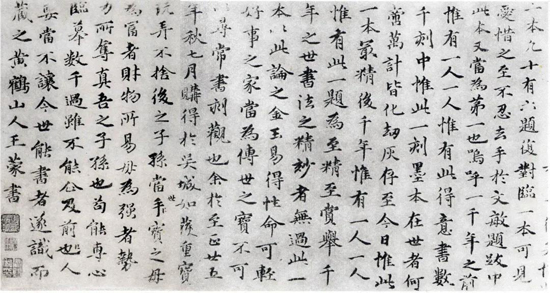 一本九十有六題復對臨一本可見
愛惜之至不忍去手於文敏題跋中
此本又當為第一也嗚呼一千年之前
惟有一人一人惟有此得意書數
千刻中惟此一刻墨本在世者何
啻萬計皆化劫灰存至今日惟此
一本最精後千年惟有一人一人
惟有此一題為至精至賞舉千
年之世書法之精妙者無過此一
本以此論之金玉易得性命可輕
好事之家當為傳世之寶不可
尋常書刻觀也余於至正廿五
年秋七月購得於吳城如獲重寶
玩弄不捨後之子孫當世寶之毋
為富者財物所易毋為強者勢
力所奪真吾之子孫也苟能專心
臨摹數千過雖不能企及前也人
要當不讓今世能書者遂識而
藏之黃鶴山人王蒙書